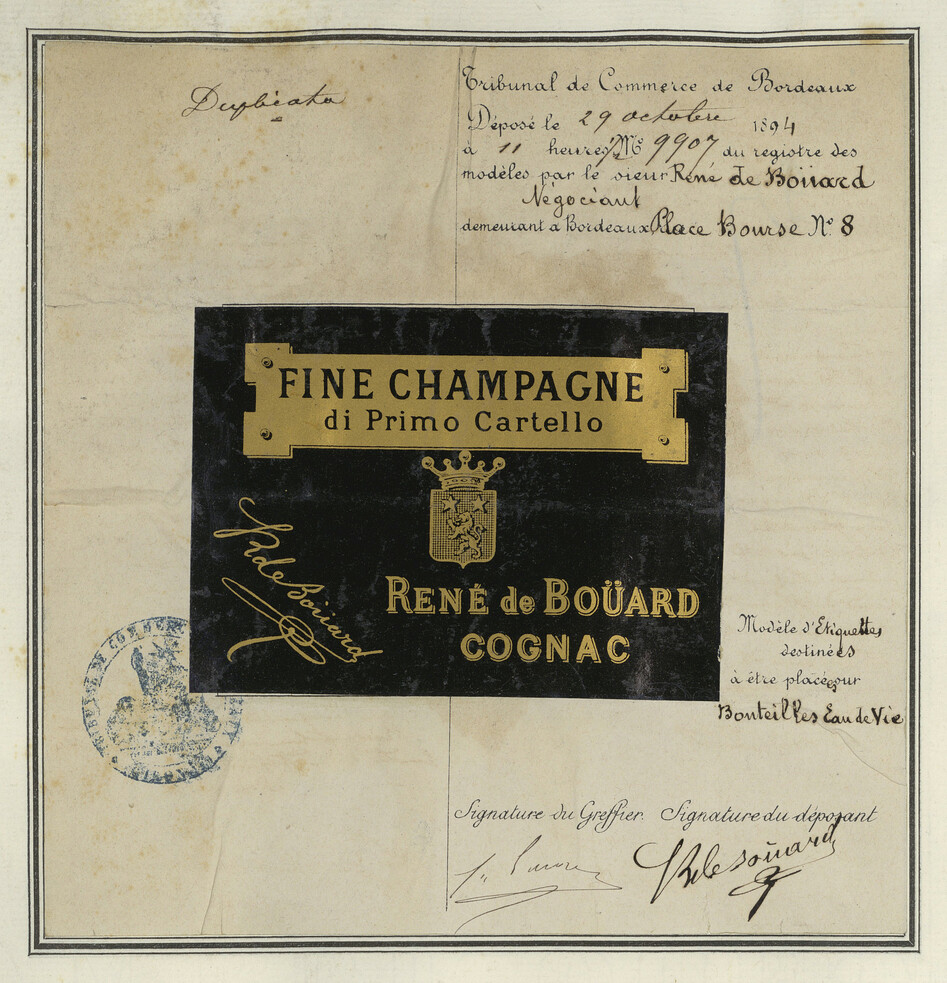 Duplicata
Tribunal de Commerce de Bordeaux
Déposé le 29 octobre 1894
à 11 heures Nº 9907 du registre des
modèles par le sieur René de Boüard
Négociant
demeurant à Bordeaux Place Bourse Nº 8
FINE CHAMPAGNE
di Primo Cartello
R de Boüard
RENÉ de BOÜARD
COGNAC
TRIBUNAL DE COMMERCE
Modèle d'Etiquettes
destinées
à être placées sur
Bouteilles Eau de Vie
Signature du Greffier. Signature du déposant
R de Boüard